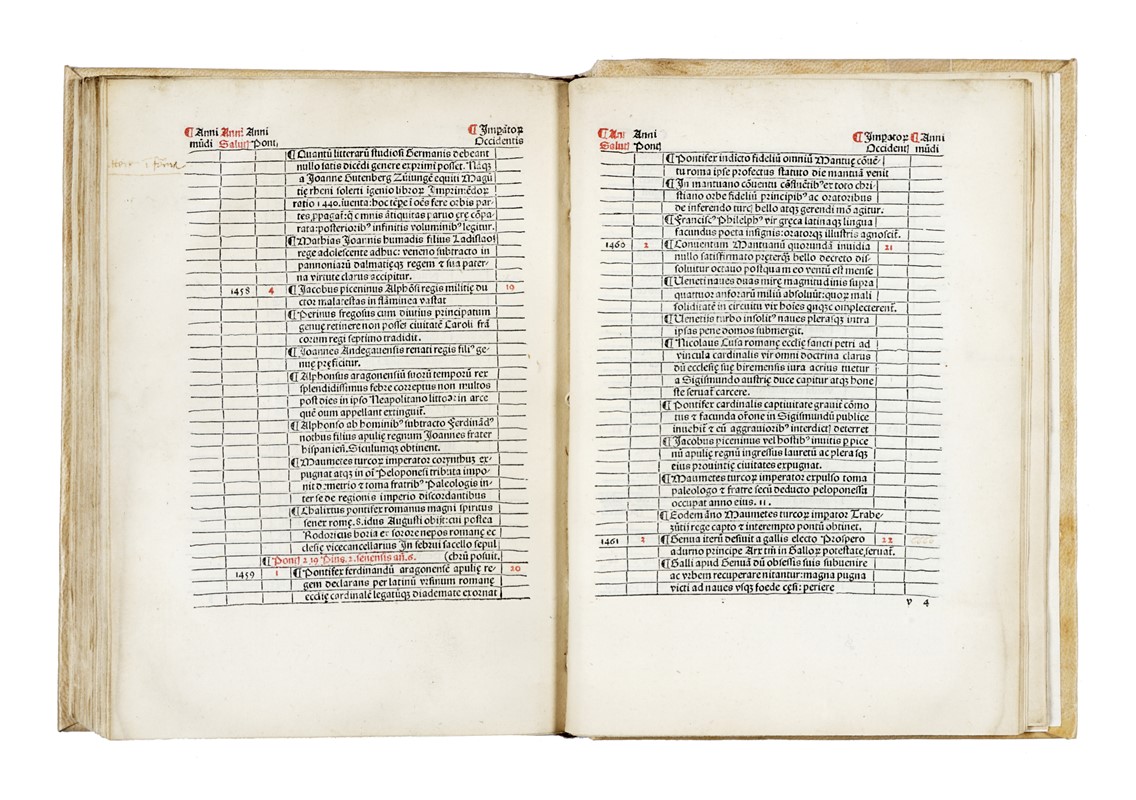 ¶ Anni Anni Anni ¶ Impator
mūdi Salut Pont Occidentis
¶ Quantū litterarū studiosi Germanis debeant
nullo satis dicēdi genere exprimi posset. Nāqꝫ
a Joanne Gutenberg Zūiungē equiti Magū
tie rheni solerti īgenio libroꝝ Imprimēdoꝝ
ratio 1440. īuenta: hoc tēpe ī oēs fere orbis par-
tes ꝓpagaf: q̄ omnis ātiquitas paruo ęre cōpa-
rata: posterioribꝰ infinitis voluminibꝰ legitur.
¶ Mathias Joannis humadis filius Ladislao
rege adolescente adhuc: veneno subtracto in
pannoniarū dalmatięqꝫ regem ꝛ sua pater-
na virtute clarus accipitur.
1458 4 ¶ Jacobus piceninus Alphōsi regis militię du 19
ctor malatestas in flāminea vastat
¶ Perinus fregosus cum diutius principatum
genuę retinere non posset ciuitatē Caroli frā
corum regi septimo tradidit.
¶ Joannes Andegauensis renati regis filiꝰ ge-
nuę pręficitur.
¶ Alphonsus aragonensiū suorū temporū rex
splendidissimus febre correptus non multos
post dies in ipso Neapolitano littoꝛ: in arce
quē oum appellant extinguit.
¶ Alphonso ab hominibꝰ subtracto Ferdinādꝰ
nothus filius apulię regnum Joannes frater
hispanień. Siculumqꝫ obtinent.
¶ Maumetes turcoꝝ imperator corynthuꝫ ex-
pugnat atqꝫ in oī Peloponesi tributa impo-
nit demetrio ꝛ toma fratribꝰ Paleologis in-
ter se de regionis imperio discordantibus
¶ Chalixtus pontifex romanus magni spiritus
senex romę. 8. idus Augusti obijt: cui postea
Rodoricus boria ex sorore nepos romanę ec
clesię vicecancellarius In febrni sacello sepul
¶ Pont 219 Piꝰs. 2. senensis añ. 6. (chrū posuit.
1459 1 ¶ Pontifex ferdinandū aragonensē apulię re- 20
gem declarans per latinū vrsinum romanę
ecclię cardinalē legatūqꝫ diademate exornat
¶ Añ Anni ¶ Impatoꝝ ¶ Anni
Salut Pont Occident mūdi
¶ Pontifex indicto fideliū omniū Mantuę cōuē
tu roma ipse profectus statuto die mantuā venit
¶ In mantuano cōuentu cōstituētibꝰ ex toto chri
stiano orbe fideliū principibꝰ ac oratoribus
de inferendo turc bello atqꝫ gerendi mō agitur.
¶ Franciscꝰ Philelphꝰ vir gręca latinaqꝫ lingua
facundus poeta insignis: oratorqꝫ illustris agnoscit.
1460 2 ¶ Conuentum Mantuanū quorundā inuidia 21
nullo satisfirmato pręterqꝫ bello decreto dis-
soluitur octauo postquam eo ventū est mense
¶ Ueneti naues duas mirę magnitudinis supra
quattuor anforarū miliū absoluūt: quoꝝ mali
soliditatē in circuitu vix hoīes quīqꝫ complecterent.
¶ Uenetijs turbo insolitꝰ naues plerasqꝫ intra
ipsas pene domos submergit.
¶ Nicolaus Cusa romanę ecclię sancti petri ad
vincula cardinalis vir omni doctrina clarus
dū ecclesię suę bixemensis iura acrius tuetur
a Sigismundo austrię duce capitur atqꝫ hone
ste seruat carcere.
¶ Pontifex cardinalis captiuitate grauit cōmo
tus ꝛ facunda orōne in Sigismundū publice
inuehit ꝛ eū aggrauioribꝰ interdict deterret
¶ Jacobus piceninus vel hostibꝰ inuitis ꝑ pice
nū apulię regnū ingressus lauretū ac plerasqꝫ
eius prouintię ciuitates expugnat.
¶ Maumetes turcoꝝ imperator expulso toma
paleologo ꝛ fratre secū deducto peloponessū
occupat anno eius. 11.
¶ Eodem āno Maumetes turcoꝝ impator Trabe-
zūti rege capto ꝛ interempto pontū obtinet.
1461 2 ¶ Genua iterū desiuit a gallis electo Prospero 22
adurno principe Arx tn̄ in Galloꝝ potestate seruat.
¶ Galli apud Genuā dū obsessis suis subuenire
ac vrbem recuperare nitantur: magna pugna
victi ad naues vsqꝫ foede cęsi: periere
v 4